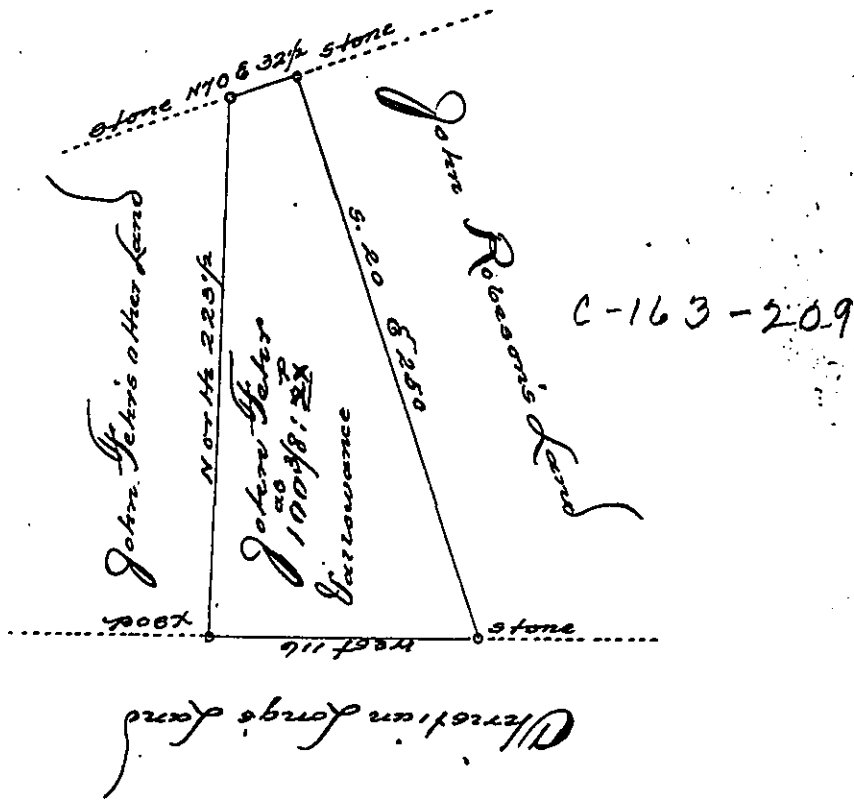 stone N70 E 32½ stone
John Fehr's other Land
North 223½
John Fehr
ac
P
& allowance
S. 20 E 250
John Robeson's Land
C-163-209
Post
West 116
stone
Christian Long's Land